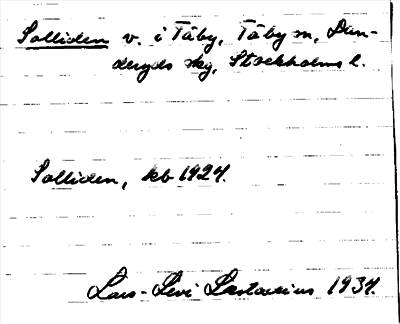 Solliden v. i Täby, Täby sn, Dan-
deryds skg, Stockholms l.
Solliden, kb 1924.
Lars-Levi Læstadius 1934.